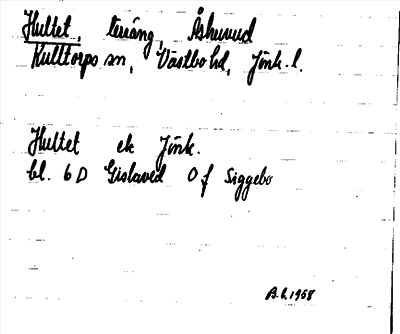 Hultet, teräng, Åshuvud
Kulltorps sn, Västbo hd, Jönk. l.
Hultet ek Jönk.
bl. 6D Gislaved 0f Siggebo
A.L. 1958